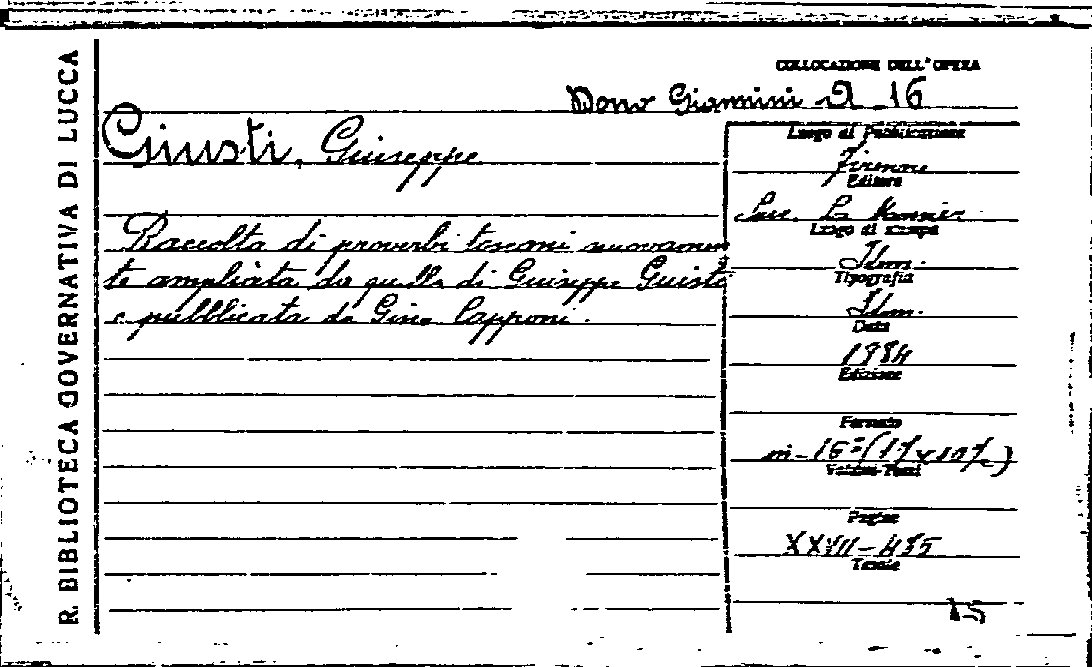 R. BIBLIOTECA GOVERNATIVA DI LUCCA
COLLOCAZIONE DELL'OPERA
Dono Giannini 16
Giusti, Giuseppe
Raccolta di proverbi toscani nuovamen
te ampliata da quella di Giuseppe Giusti
e pubblicata da Gino Capponi.
Luogo di Pubblicazione
Firenze
Editore
Suc. Le Monnier
Luogo di stampa
Idem.
Tipografia
Idem.
Data
1884
Edizione
Formato
in-16º (17 x
Volumi-Tomi
Pagine
XXVII-495
Tavole
15